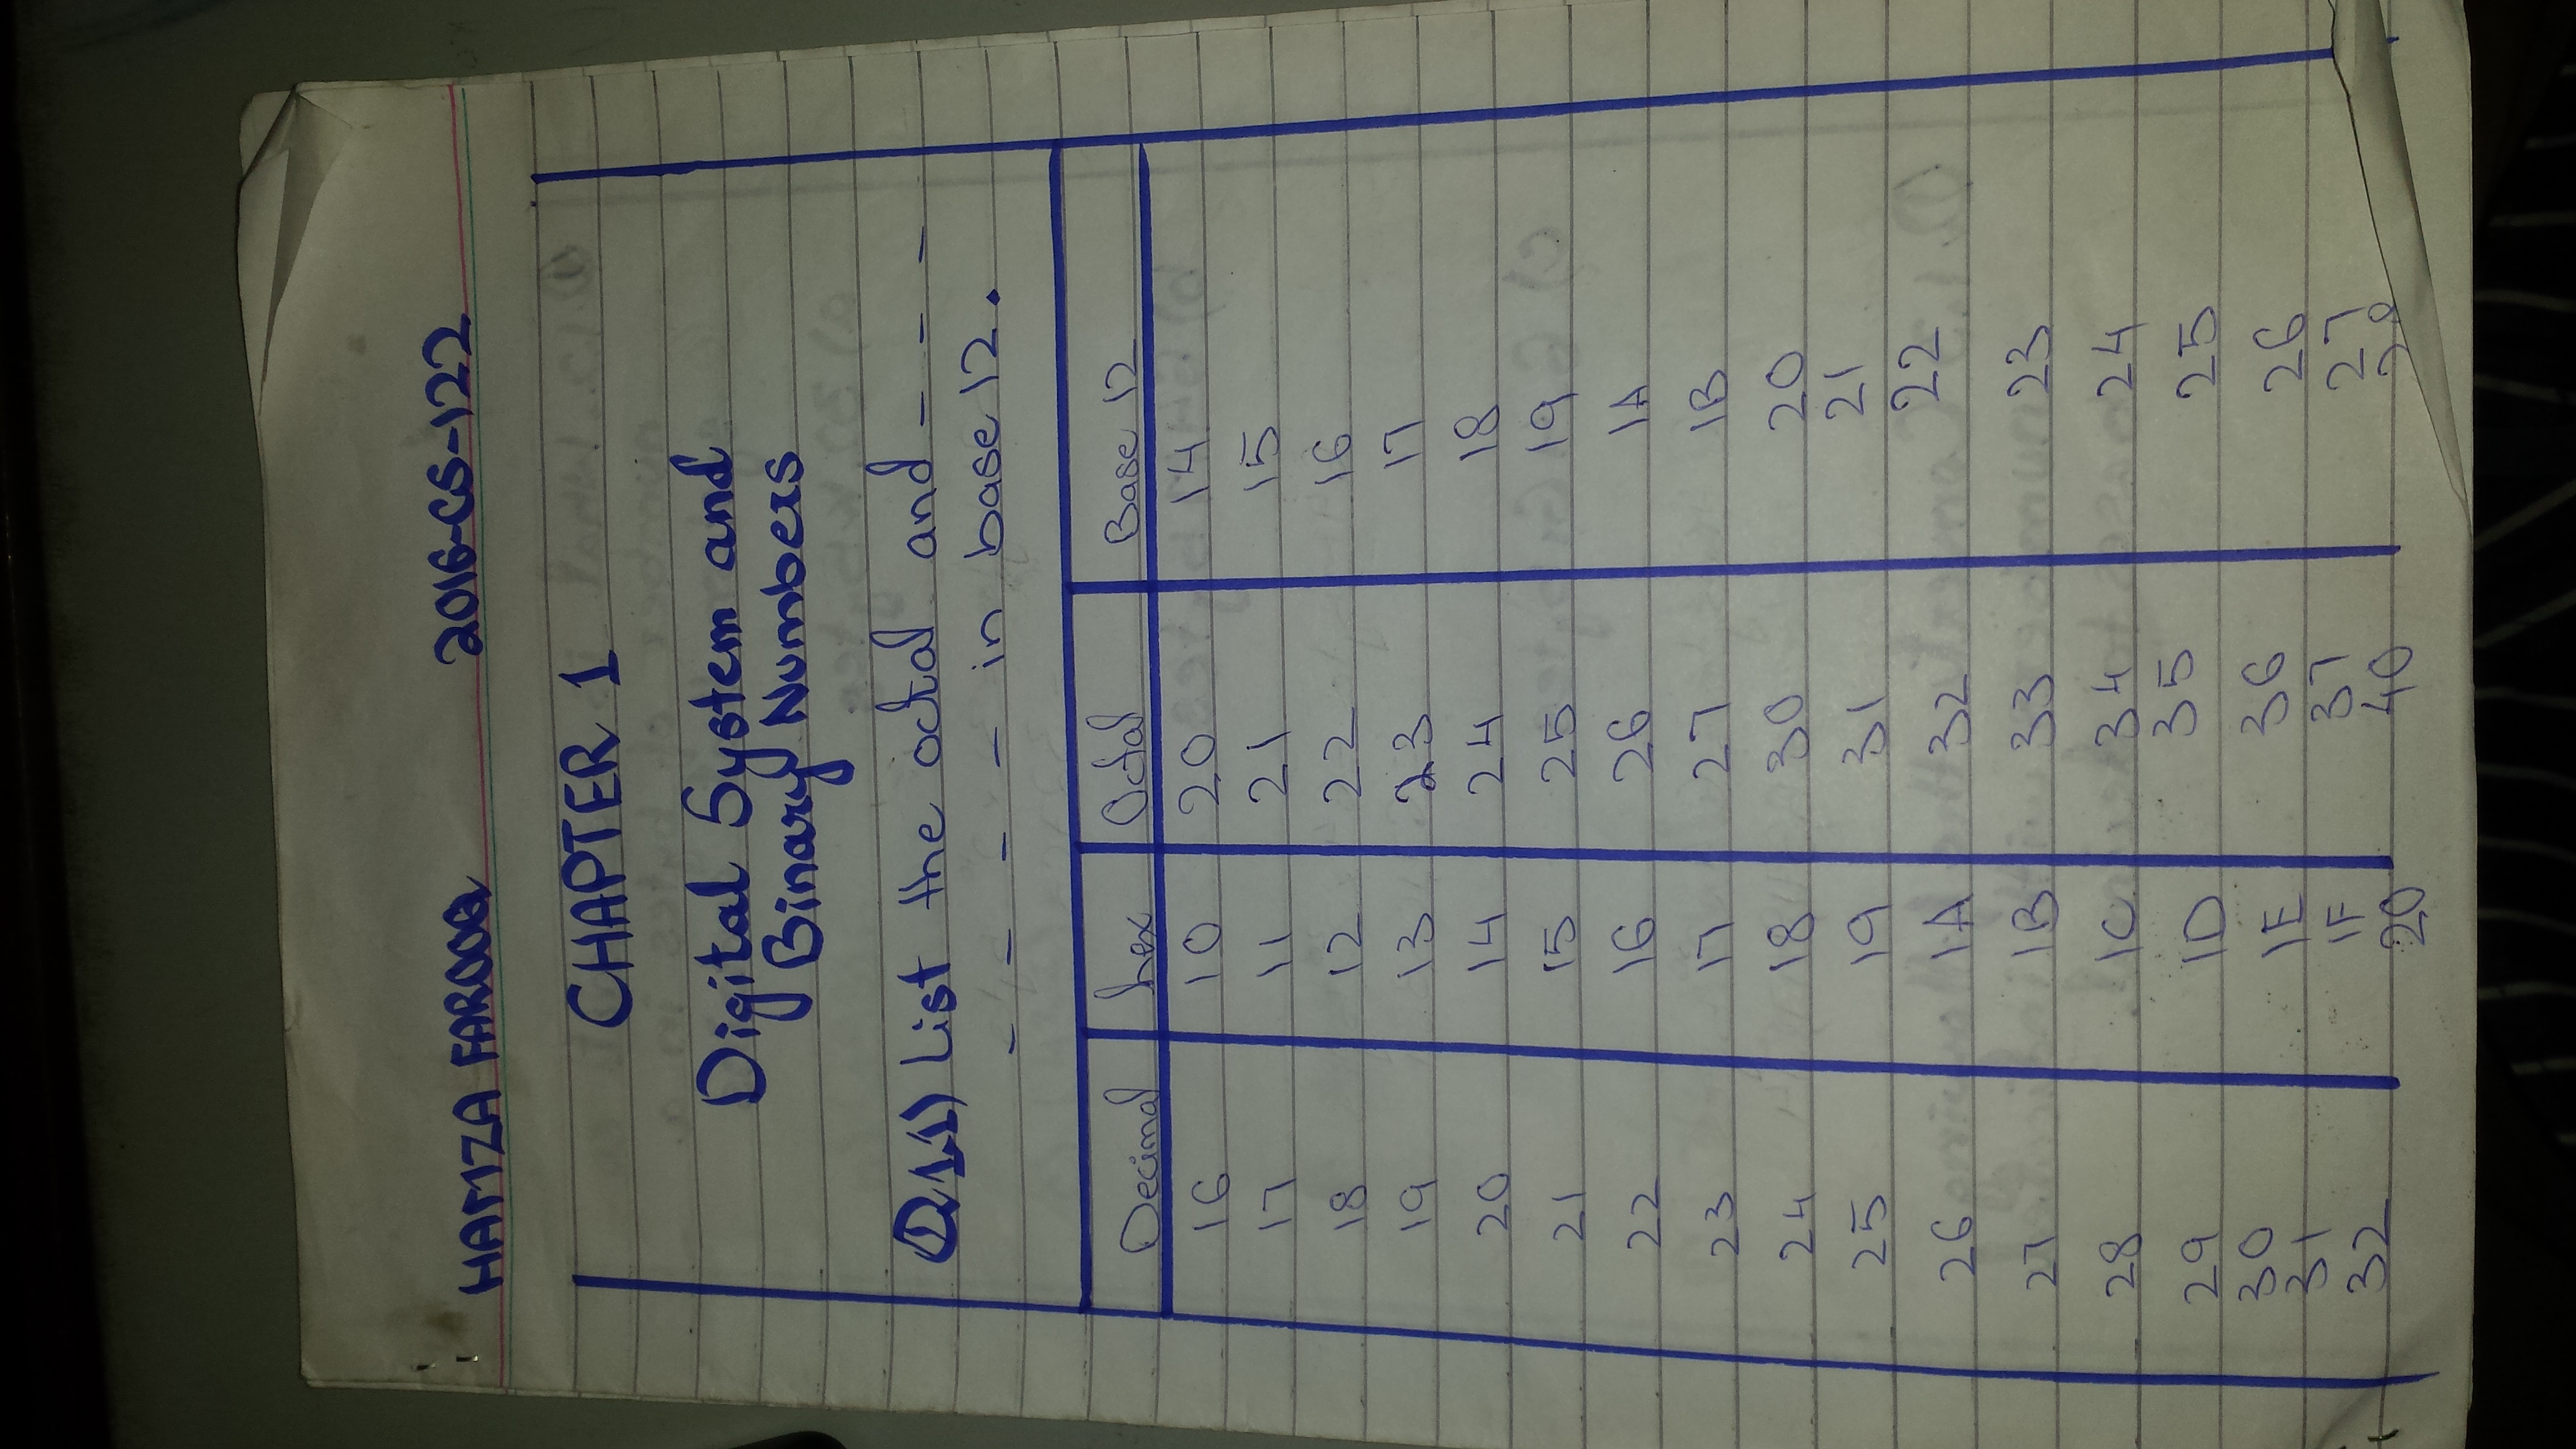 HAMZA FAROOQ 2016-CS-122
CHAPTER 1
Digital System and
Binary Numbers
Q1.1) List the octal and - - -
- - - - in base 12.
Decimal hex Octal Base 12
16 10 20 14
17 11 21 15
18 12 22 16
19 13 23 17
20 14 24 18
21 15 25 19
22 16 26 1A
23 17 27 1B
24 18 30 20
25 19 31 21
26 1A 32 22
27 1B 33 23
28 1C 34 24
29 1D 35 25
30 1E 36 26
31 1F 37 27
32 20 40 28